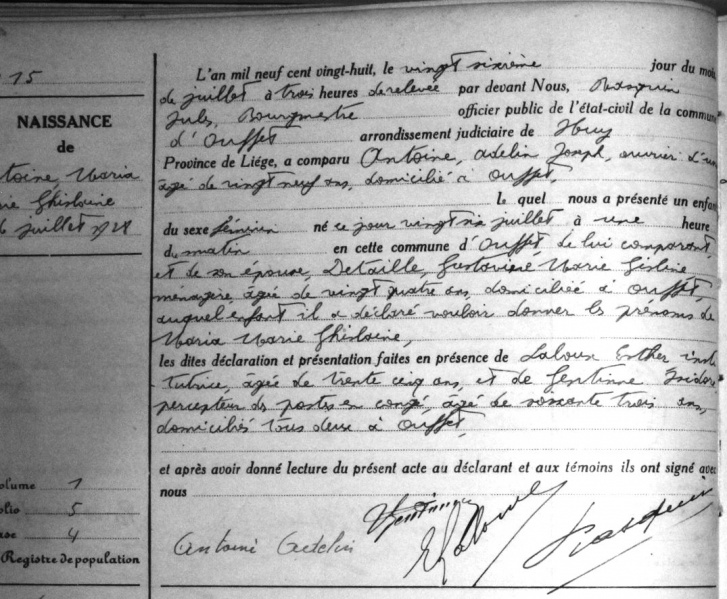 15
NAISSANCE
de
toine Maria
rie Ghislaine
6 juillet 1928
L'an mil neuf cent vingt-huit, le vingt sixième jour du mois
de juillet à trois heures de relevée par devant Nous,
Jules, Bourgmestre officier public de l'état-civil de la commun
d'Ouffet arrondissement judiciaire de Huy
Province de Liége, a comparu Antoine, Adelin Joseph, ouvrier
âgé de vingt neuf ans, domicilié à Ouffet,
le quel nous a présenté un enfan
du sexe féminin né ce jour vingt six juillet à une heure
du matin en cette commune d'Ouffet de lui comparant,
et de son épouse, Detaille, Marie Gisline
ménagère, âgée de vingt quatre ans, domiciliée à Ouffet,
auquel enfant il a déclaré vouloir donner les prénoms de
Maria Marie Ghislaine,
les dites déclaration et présentation faites en présence de Laloux Esther insti
tutrice, âgée de trente cinq ans, et de Gentinne Isidore
percepteur des postes en congé, âgé de soixante trois ans,
domiciliés tous deux à Ouffet,
et après avoir donné lecture du présent acte au déclarant et aux témoins ils ont signé avec
nous
Antoine Adelin
olume 1
olio 5
ase 4
Registre de population